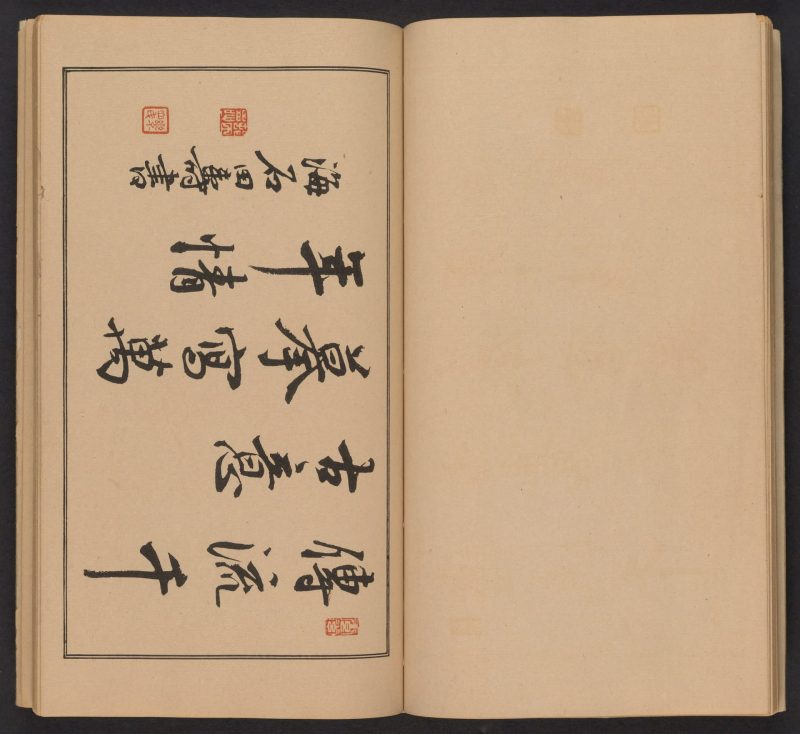 傳流千
古意
摹寫萬
年情
海石田壽書